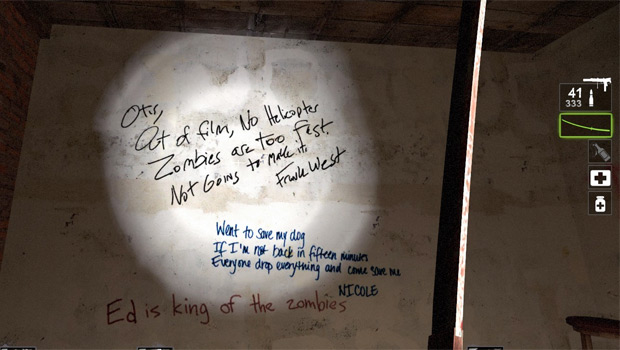 Otis,
Out of film, No Helicopter
Zombies are too fast.
Not Going to make it
Frank West
Went to save my dog
If I'm not back in fifteen minutes
Everyone drop everything and come save me
NICOLE
Ed is king of the zombies
41
333